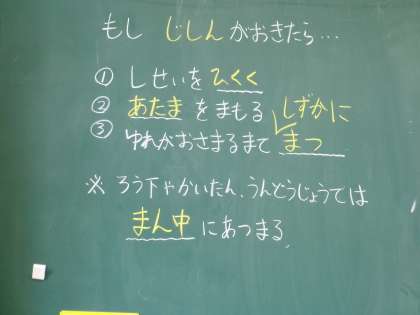 もし じしんがおきたら…
① しせいを ひくく
② あたまをまもる
③ ゆれがおさまるまで しずかに まつ
※ ろう下やかいだん、うんどうじょうでは
まん中にあつまる。